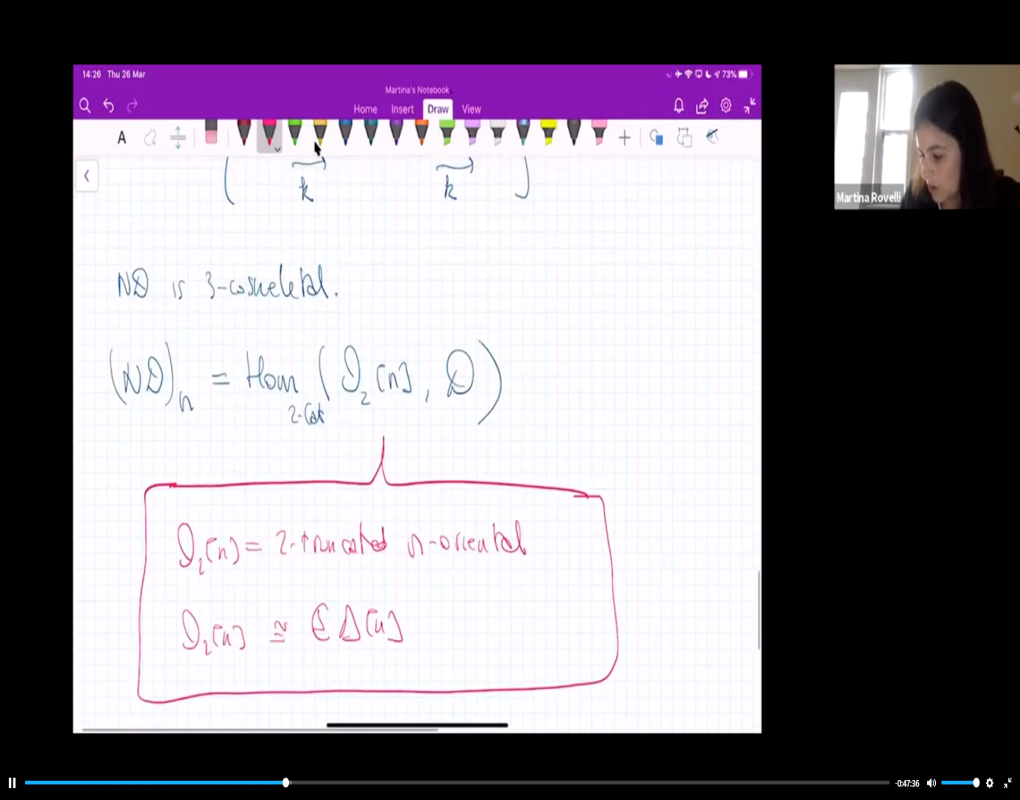 14:26 Thu 26 Mar
73%
Martina's Notebook
Home Insert Draw View
A
k k
ND is 3-coskeletal.
(ND)ₙ = Hom₂₋Cat (O₂[n], D)
O₂[n] = 2-truncated n-oriental
O₂[n] ≅ ℭΔ[n]
Martina Rovelli
-0:47:36